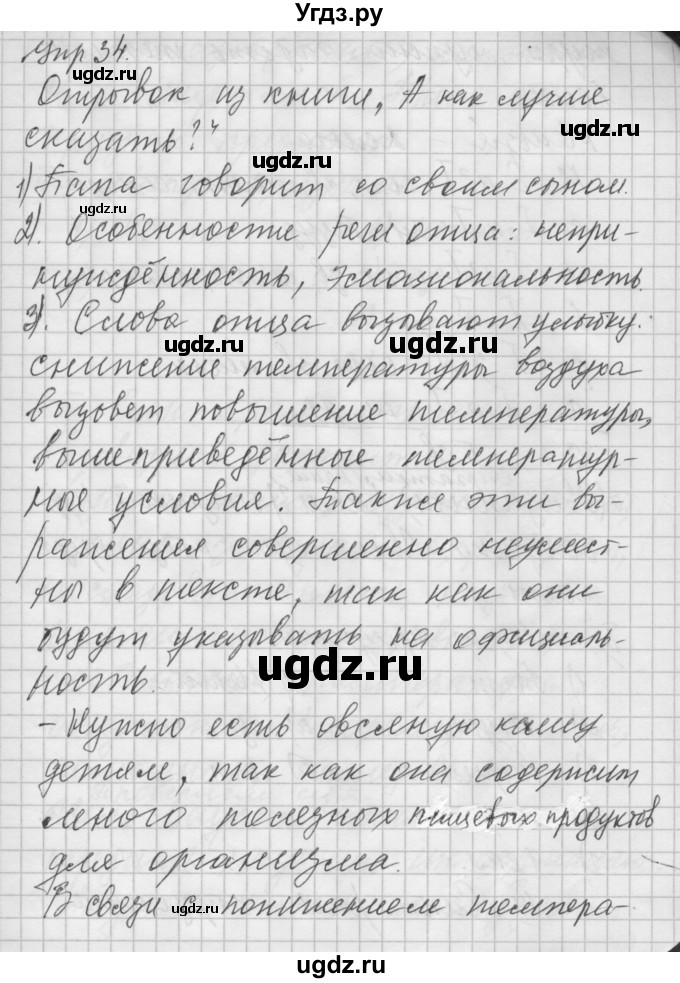 Угдз.ру
Упр 34.
ugdz.ru
Отрывок из книги „А как лучше
ugdz.ru
сказать?“
ugdz.ru
1) Папа говорит со своим сыном.
ugdz.ru
2). Особенности речи отца: непри-
нуждённость, эмоциональность.
3). Слова отца вызывают улыбку:
ugdz.ru ugdz.ru
снижение температуры воздуха
вызовет повышение температуры,
вышеприведённые температур-
ные условия. Также эти вы-
ugdz.ru
ражения совершенно неумест-
ны в тексте, так как они
ugdz.ru
будут указывать на официаль-
ugdz.ru
ность.
- Нужно есть овсяную кашу
ugdz.ru
детям, так как она содержит
много полезных пищевых продуктов
для организма.
В связи с понижением темпера-
ugdz.ru
ugdz.ru